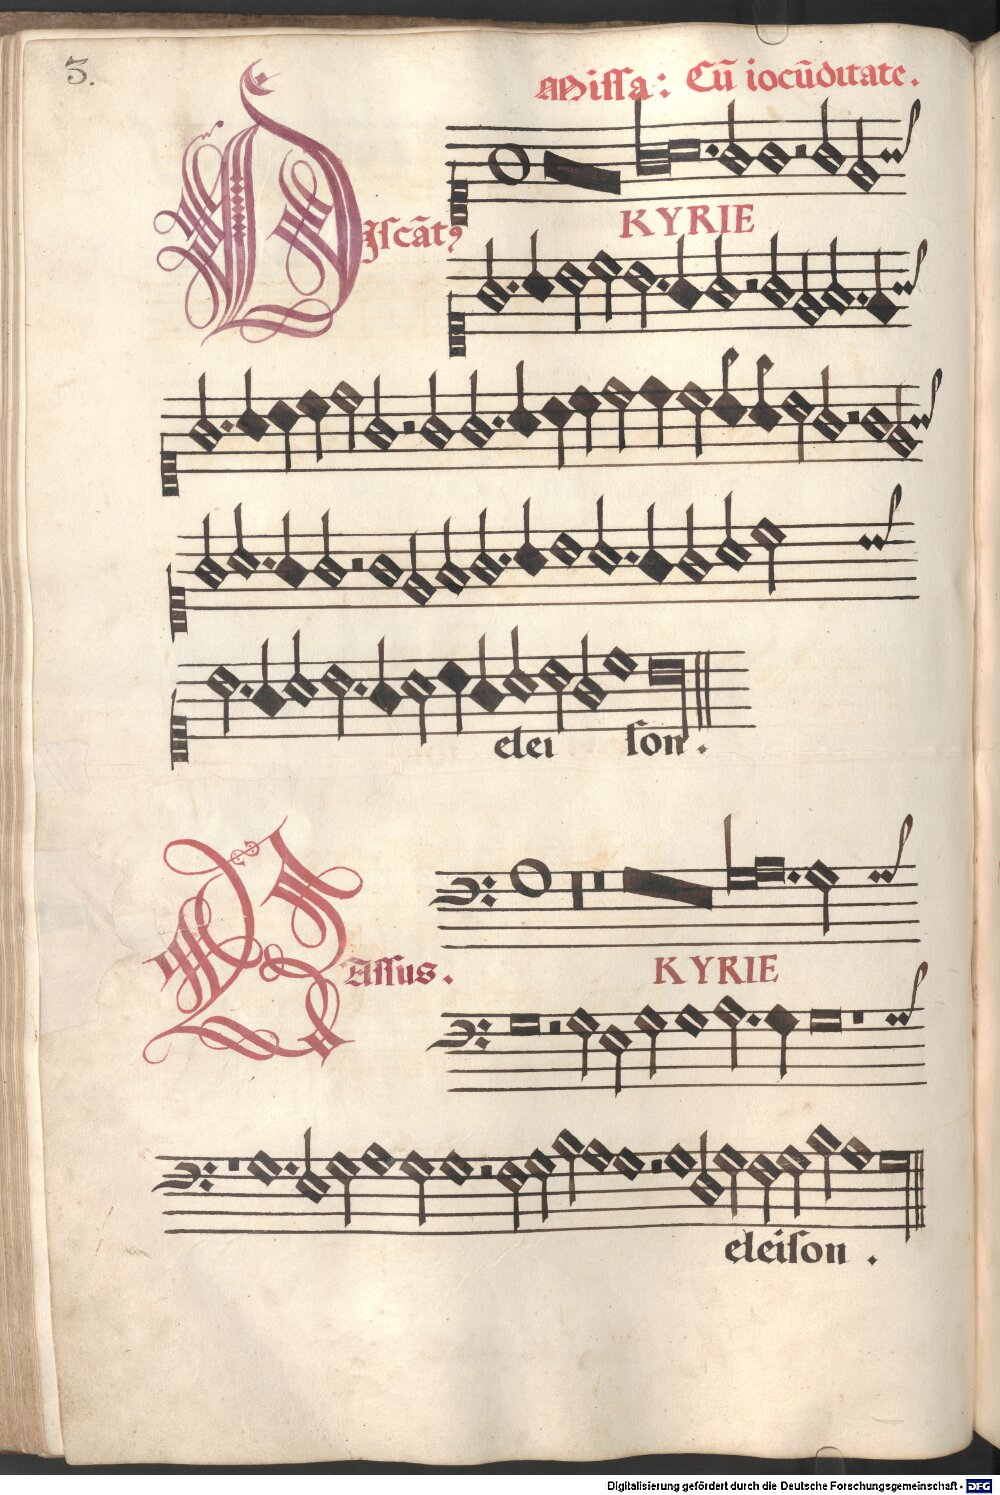 3.
Missa: Cũ iocũditate.
Discãtꝰ
KYRIE
elei son.
Bassus.
KYRIE
eleison.
Digitalisierung gefördert durch die Deutsche Forschungsgemeinschaft - DFG